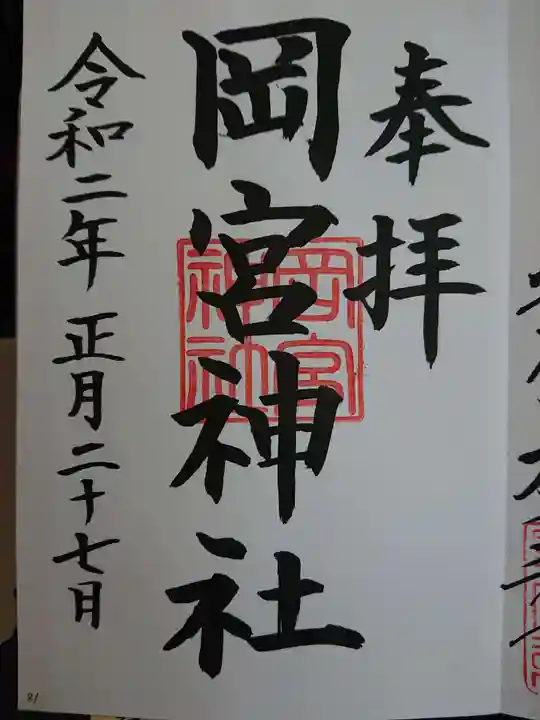 奉拝
岡宮神社
岡宮
神社
令和二年正月二十七日
21